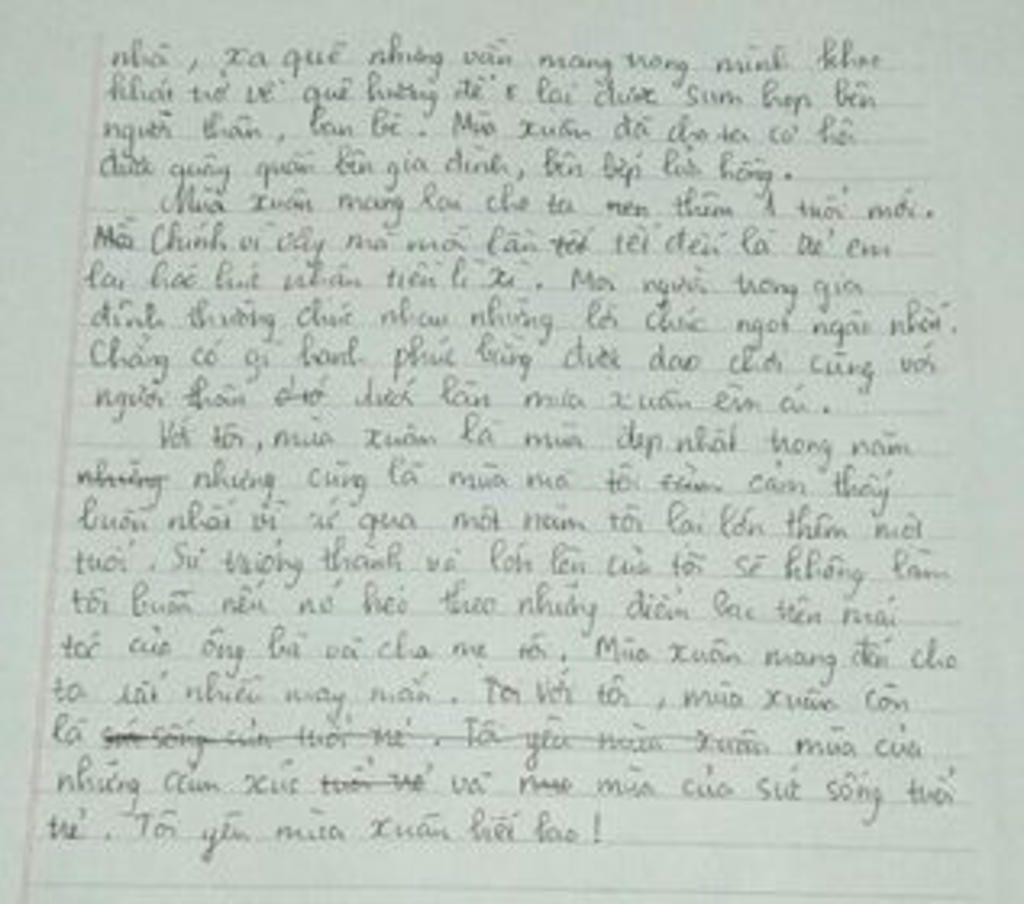 nhà, xa quê nhưng vẫn mang trong mình khao
khát trở về quê hương để lại được sum họp bên
người thân, bạn bè. Mùa xuân đã cho ta cơ hội
được quây quần bên gia đình, bên bếp lửa hồng.
Mùa xuân mang lại cho ta thêm 1 tuổi mới.
Chính vì vậy mà mỗi lần tết đến là trẻ em
lại háo hức nhận tiền lì xì. Mọi người trong gia
đình thường chúc nhau những lời chúc ngọt ngào nhất.
Chẳng có gì hạnh phúc bằng được dạo chơi cùng với
người thân dưới làn mưa xuân êm ái.
Với tôi, mùa xuân là mùa đẹp nhất trong năm
những nhưng cũng là mùa mà tôi cảm thấy
buồn nhất vì sẽ qua một năm tôi lại lớn thêm một
tuổi. Sự trưởng thành và lớn lên của tôi sẽ không làm
tôi buồn nếu nó kéo theo những điểm bạc trên mái
tóc của ông bà và cha mẹ tôi. Mùa xuân mang đến cho
ta rất nhiều may mắn. Với tôi, mùa xuân còn
là sức sống của tuổi trẻ. Tôi yêu mùa xuân mùa của
những cảm xúc tuổi trẻ và mùa của sức sống tuổi
trẻ. Tôi yêu mùa xuân biết bao!